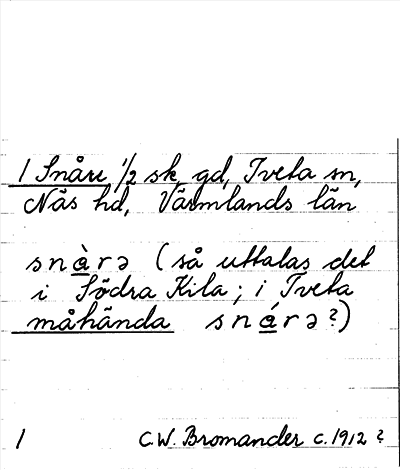 1 Snåre 1/2 sk, gd, Tveta sn,
Näs hd, Värmlands län
snàrə (så uttalas det
i Södra Kila; i Tveta
måhända snárə?)
1 C.W. Bromander c. 1912?